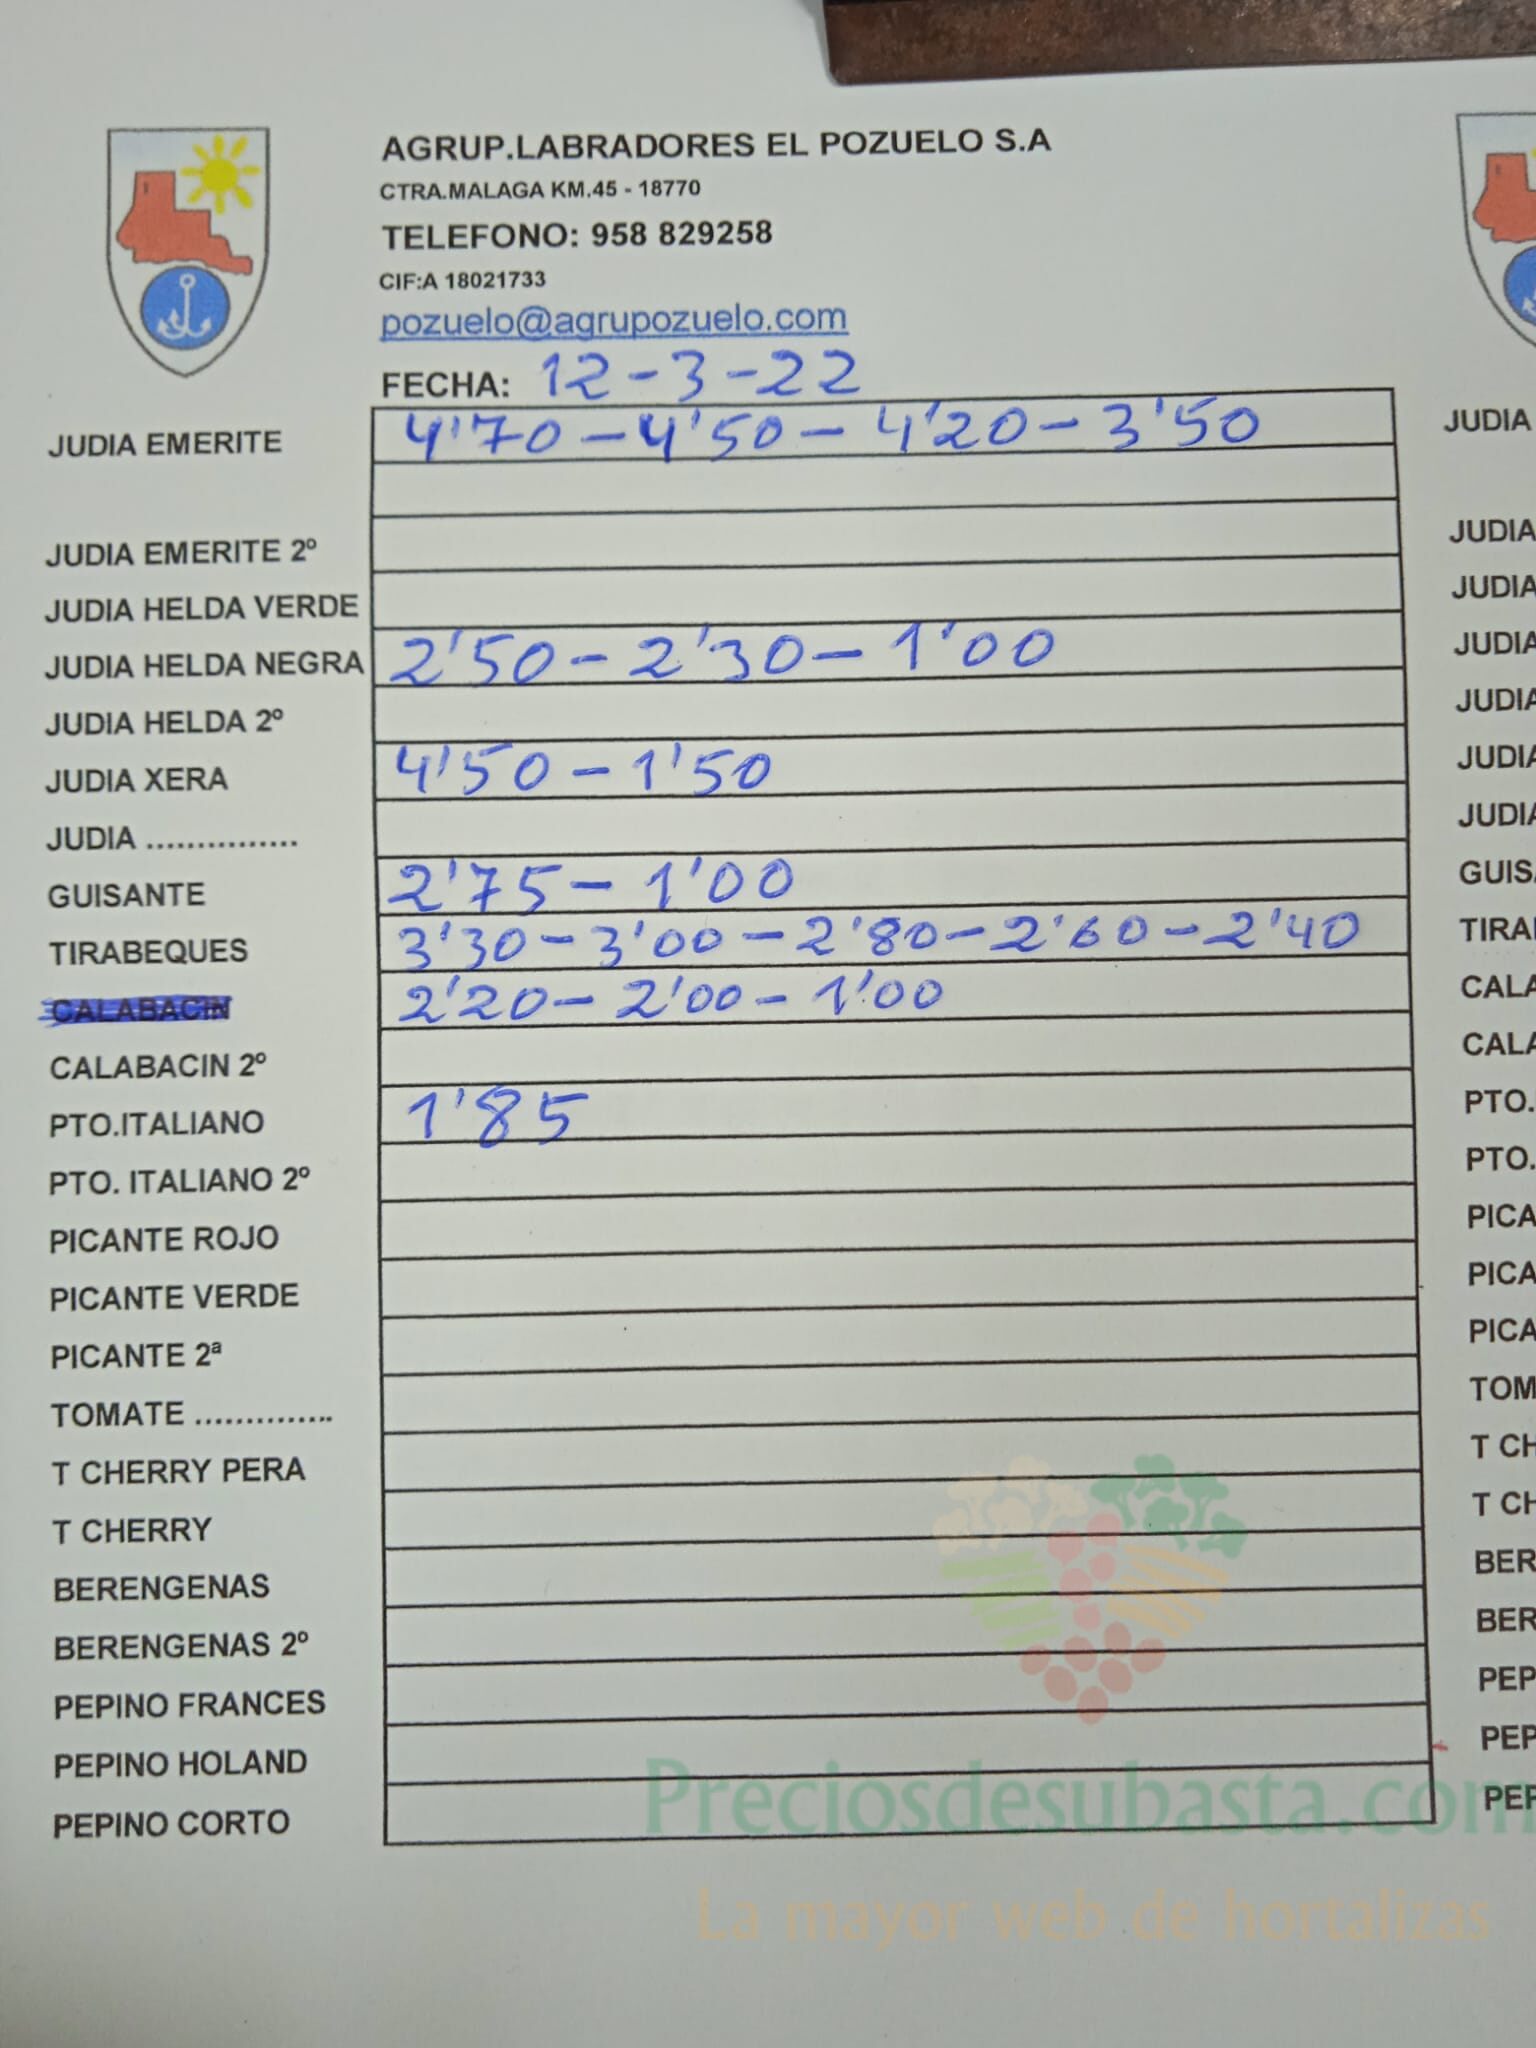 AGRUP.LABRADORES EL POZUELO S.A
CTRA.MALAGA KM.45 - 18770
TELEFONO: 958 829258
CIF:A 18021733
pozuelo@agrupozuelo.com
FECHA: 12-3-22
JUDIA EMERITE 4'70 - 4'50 - 4'20 - 3'50
JUDIA EMERITE 2º
JUDIA HELDA VERDE
JUDIA HELDA NEGRA 2'50 - 2'30 - 1'00
JUDIA HELDA 2º
JUDIA XERA 4'50 - 1'50
JUDIA ...............
GUISANTE 2'75 - 1'00
TIRABEQUES 3'30 - 3'00 - 2'80 - 2'60 - 2'40
CALABACIN 2'20 - 2'00 - 1'00
CALABACIN 2º
PTO.ITALIANO 1'85
PTO. ITALIANO 2º
PICANTE ROJO
PICANTE VERDE
PICANTE 2ª
TOMATE ..............
T CHERRY PERA
T CHERRY
BERENGENAS
BERENGENAS 2º
PEPINO FRANCES
PEPINO HOLAND
PEPINO CORTO
JUDIA
JUDIA
JUDIA
JUDIA
JUDIA
JUDIA
JUDIA
GUISA
TIRA
CALA
CALA
PTO.
PTO.
PICA
PICA
PICA
TOM
T CH
T CH
BER
BER
PEP
PEP
PEP
Preciosdesubasta.com
La mayor web de hortalizas